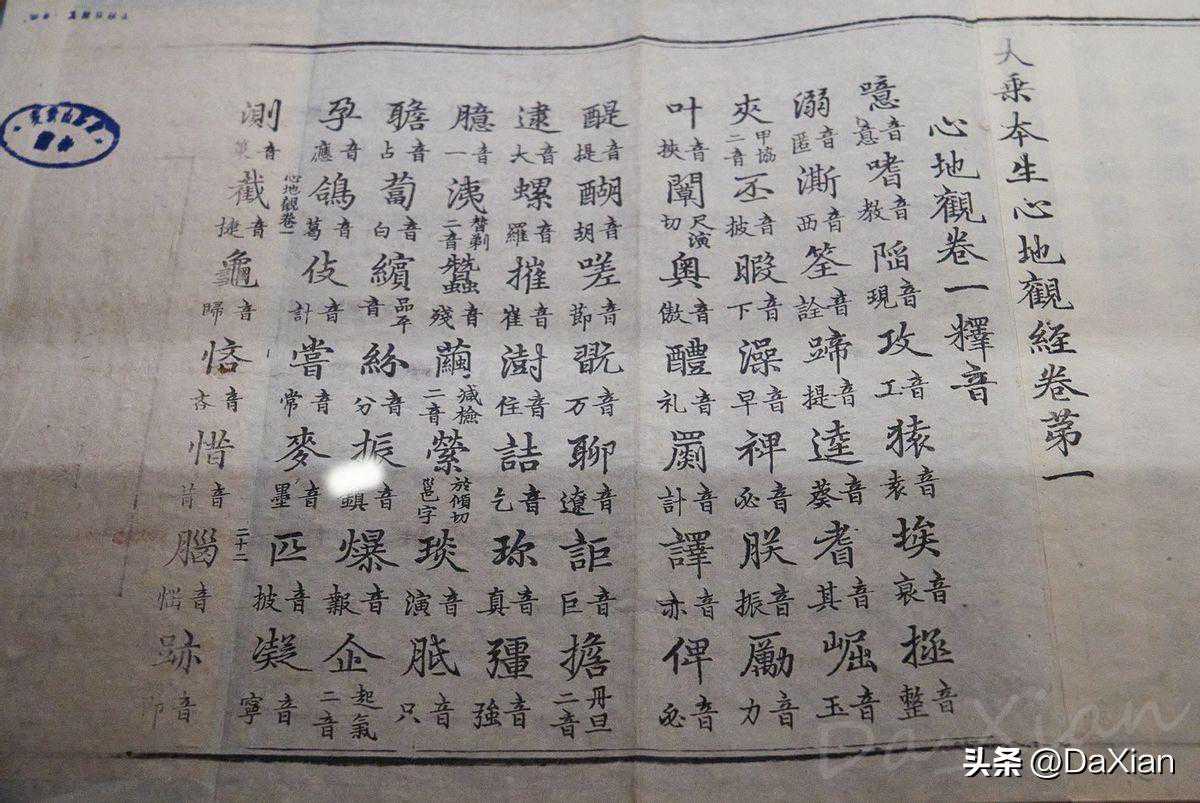 大乗本生心地觀経卷苐一
心地觀卷一釋音
噫音意 嗜音教 陷音現 攻音工 猿音袁 埃音哀 拯音整
溺音匿 澌音西 筌音詮 蹄音提 逵音葵 耆音其 崛音玉
夾甲協二音 丕音披 暇音下 澡音早 裨音必 朕音振 勵音力
叶音挾 闡尺演切 奥音傲 醴音礼 罽音計 譯音亦 俾音必
醍音提 醐音胡 嗟音節 翫音万 聊音遼 詎音巨 擔丹旦二音
逮音大 螺音羅 摧音崔 澍音住 詰音乞 珎音真 彊音強
臆音一 洟替剃二音 蠶音殘 繭減檢二音 縈於傾切邕字 琰音演 胝音只
瞻音占 蔔音白 繽品平音 紛音分 振音鎮 爆音報 企起氣二音
孕音應 鴿音葛 伎音計 嘗音常 麥音墨 匹音披 凝音寧
心地觀卷一 二十二
測音 截音捷 龜音歸 悋音吝 惜音昔 腦音惱 跡音即
Da Xian
头条 @DaXian